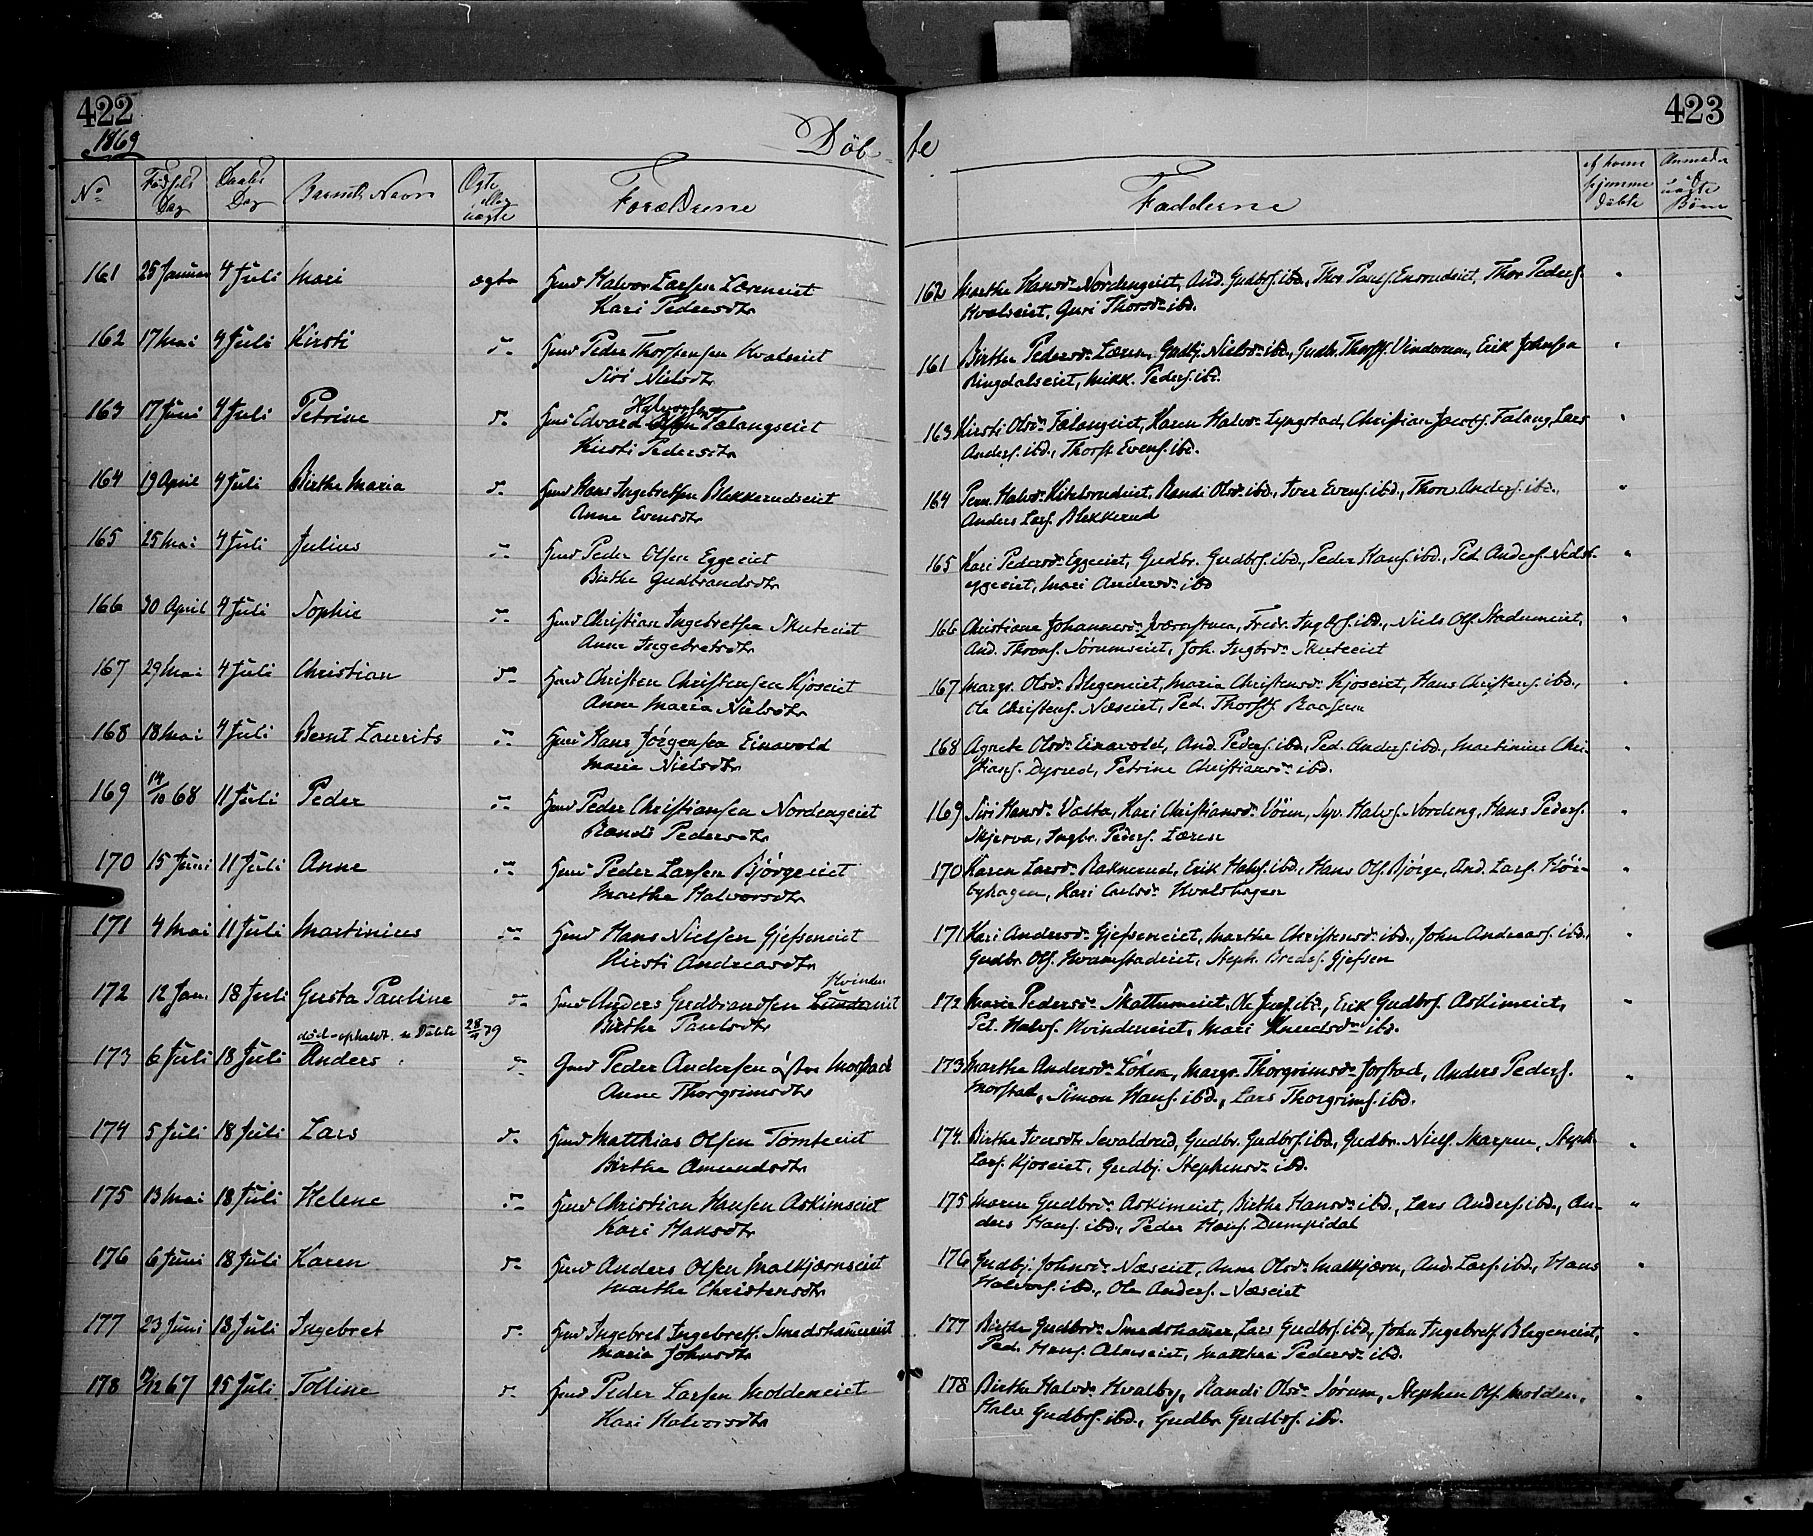 422
1869
Döb-
No
Födsels Dag
Daabs Dag
Barnets Navn
Ægte eller uægte
Forældrene
161 25 Januar 4 Juli Mari ægte Huus Halvor Larsen Læreneiet
Kari Pedersdtr
162 17 Mai 4 Juli Kirsti d- Huus Peder Thorstensen Kvalseiet
Siri Nielsdtr
163 17 Juni 4 Juli Petrine d- Huus Edvard Halvorsen Falangseiet
Kirsti Pedersdtr
164 19 April 4 Juli Birthe Maria d- Huus Hans Ingebretsen Blekkerudseiet
Anne Evensdtr
165 25 Mai 4 Juli Julius d- Huus Peder Olsen Eggeeiet
Birthe Gudbrandsdtr
166 30 April 4 Juli Sophie d- Huus Christian Ingebretsen Skuteeiet
Anne Ingebretsdtr
167 29 Mai 4 Juli Christian d- Huus Christen Christensen Kjoseiet
Anne Maria Nielsdtr
168 18 Mai 4 Juli Bernt Laurits d- Huus Hans Jörgensen Einavold
Maria Nielsdtr
169 14/10 68 11 Juli Peder d- Huus Peder Christiansen Nordengeiet
Randi Pedersdtr
170 15 Juni 11 Juli Anne d- Huus Peder Larsen Bjørgeeiet
Marthe Halvorsdtr
171 4 Mai 11 Juli Martinius d- Huus Hans Nielsen Gjefseneiet
Kirsti Andreasdtr
172 12 Jan. 18 Juli Gusta Pauline d- Huus Anders Gudbrandsen Hvindeneiet
Birthe Paulsdtr
173 6 Juli 18 Juli Anders d- Gmd Peder Andersen östre Morstad
Anne Thorgrimsdtr
174 5 Juli 18 Juli Lars d- Huus Matthias Olsen Tömteeiet
Birthe Amundsdtr
175 13 Mai 18 Juli Helene d- Huus Christian Hansen Askimseiet
Kari Hansdtr
176 6 Juni 18 Juli Karen d- Huus Anders Olsen Malkjærnseiet
Marthe Christensdtr
177 23 Juni 18 Juli Ingebret d- Huus Ingebret Ingebrets. Smedshaueneiet
Maria Johnsdtr
178 67 25 Juli Tolline d- Huus Peder Larsen Moldeneiet
Kari Halvorsdtr
423
te
Fadderne
af hvem hjemme döbte
Anmelder uægte Börn
162 Marthe Hansd. Nordengeiet, And. Gudbrs. ibd., Thor Pauls. Ensrudeiet, Thor Peders.
Kvalseiet, Guri Thorsd. ibd.
161 Birthe Pedersd. Læren, Gudbj. Nielsd. ibd., Gudbr. Thorsts. Vinderen, Erik Johnsen
Ringdalseiet, Mikk. Peders. ibd.
163 Kirsti Olsd. Falangeiet, Karen Halvd. Lyngstad, Christian Jacobs. Falang, Lars
Anders. ibd., Thorst Evens. ibd.
164 Pern. Halvd. Kittelsrudeiet, Randi Olsd. ibd., Iver Evens. ibd., Thore Anders. ibd.,
Anders Lars. Blekkerud
165 Kari Pedersd. Eggeeiet, Gudbr. Gudbrs. ibd., Peder Hans. ibd., Ped. Anders. Nedst-
eggeeiet, Mari Andersd. ibd
166 Christiane Johannesd. , Fredr. Ingbs. ibd., Niels Ols. Stadumeiet,
And. Throns. Sörumseiet, Joh. Ingbrd. Skuteeiet
167 Margr. Olsd. Blegeneiet, Maria Christensd. Kjoseiet, Hans Christens. ibd.,
Ole Christens. Næseiet, Ped. Thorsts. Raasum
168 Agnete Olsd. Einavold, And. Peders. ibd., Ped. Anders. ibd., Martinius Chri-
stians. Dynred, Petrine Christiansd. ibd.
169 Siri Hansd. Valta, Kari Christiansd. Vöien, Syv. Halvs. Nordeng, Hans Peders.
Skjerva, Ingbr. Peders. Læren
170 Karen Larsd. Raknerud, Erik Halvs. ibd., Hans Ols. Bjørge, And. Lars.
Kari Carlsd. Hvalshagen
171 Kari Andersd. Gjefseneiet, Marthe Christensd. ibd., John Andreas. ibd.,
Gudbr. Ols. Hvamstadeiet, Steph. Breds. Gjefsen
172 Maria Pedersd. Skattumeiet, Ole Jens. ibd., Erik Gudbrs. Askimeiet,
Pet. Halvs. Hvindeneiet, Mari Knudsd. ibd.
173 Marthe Andersd. Löken, Margr. Thorgrimsd. Jorstad, Anders Peders.
Morstad, Simon Hans. ibd., Lars Thorgrims. ibd.
174. Birthe Iversdtr Sevaldrud, Gudbr. Gudbrs. ibd., Gudbr. Niels. Marpen, Steph.
Lars. Kjoseiet, Gudbj. Stephensd. ibd.
175 Maren Gudbrd. Askimeiet, Birthe Hansd. ibd., Lars Anders. ibd., An-
ders Hans. ibd., Peder Hans. Dumpidal
176 Gudbj. Johnsd. Næseiet, Anne Olsd. Malkjærn, And. Lars. ibd., Hans
Halvors. ibd., Ole Anders. Næseiet
177 Birthe Gudbrd. Smedshauen, Lars Gudbrs. ibd., John Ingebrets. Blegeneiet,
Ped. Hans. Almseiet, Matthea Pedersd. ibd.
178 Birthe Halvd. Hvalby, Randi Olsd. Sörum, Stephen Ols. Molden,
Halv Gudbrs. ibd., Gudbr. Gudbrs. ibd.